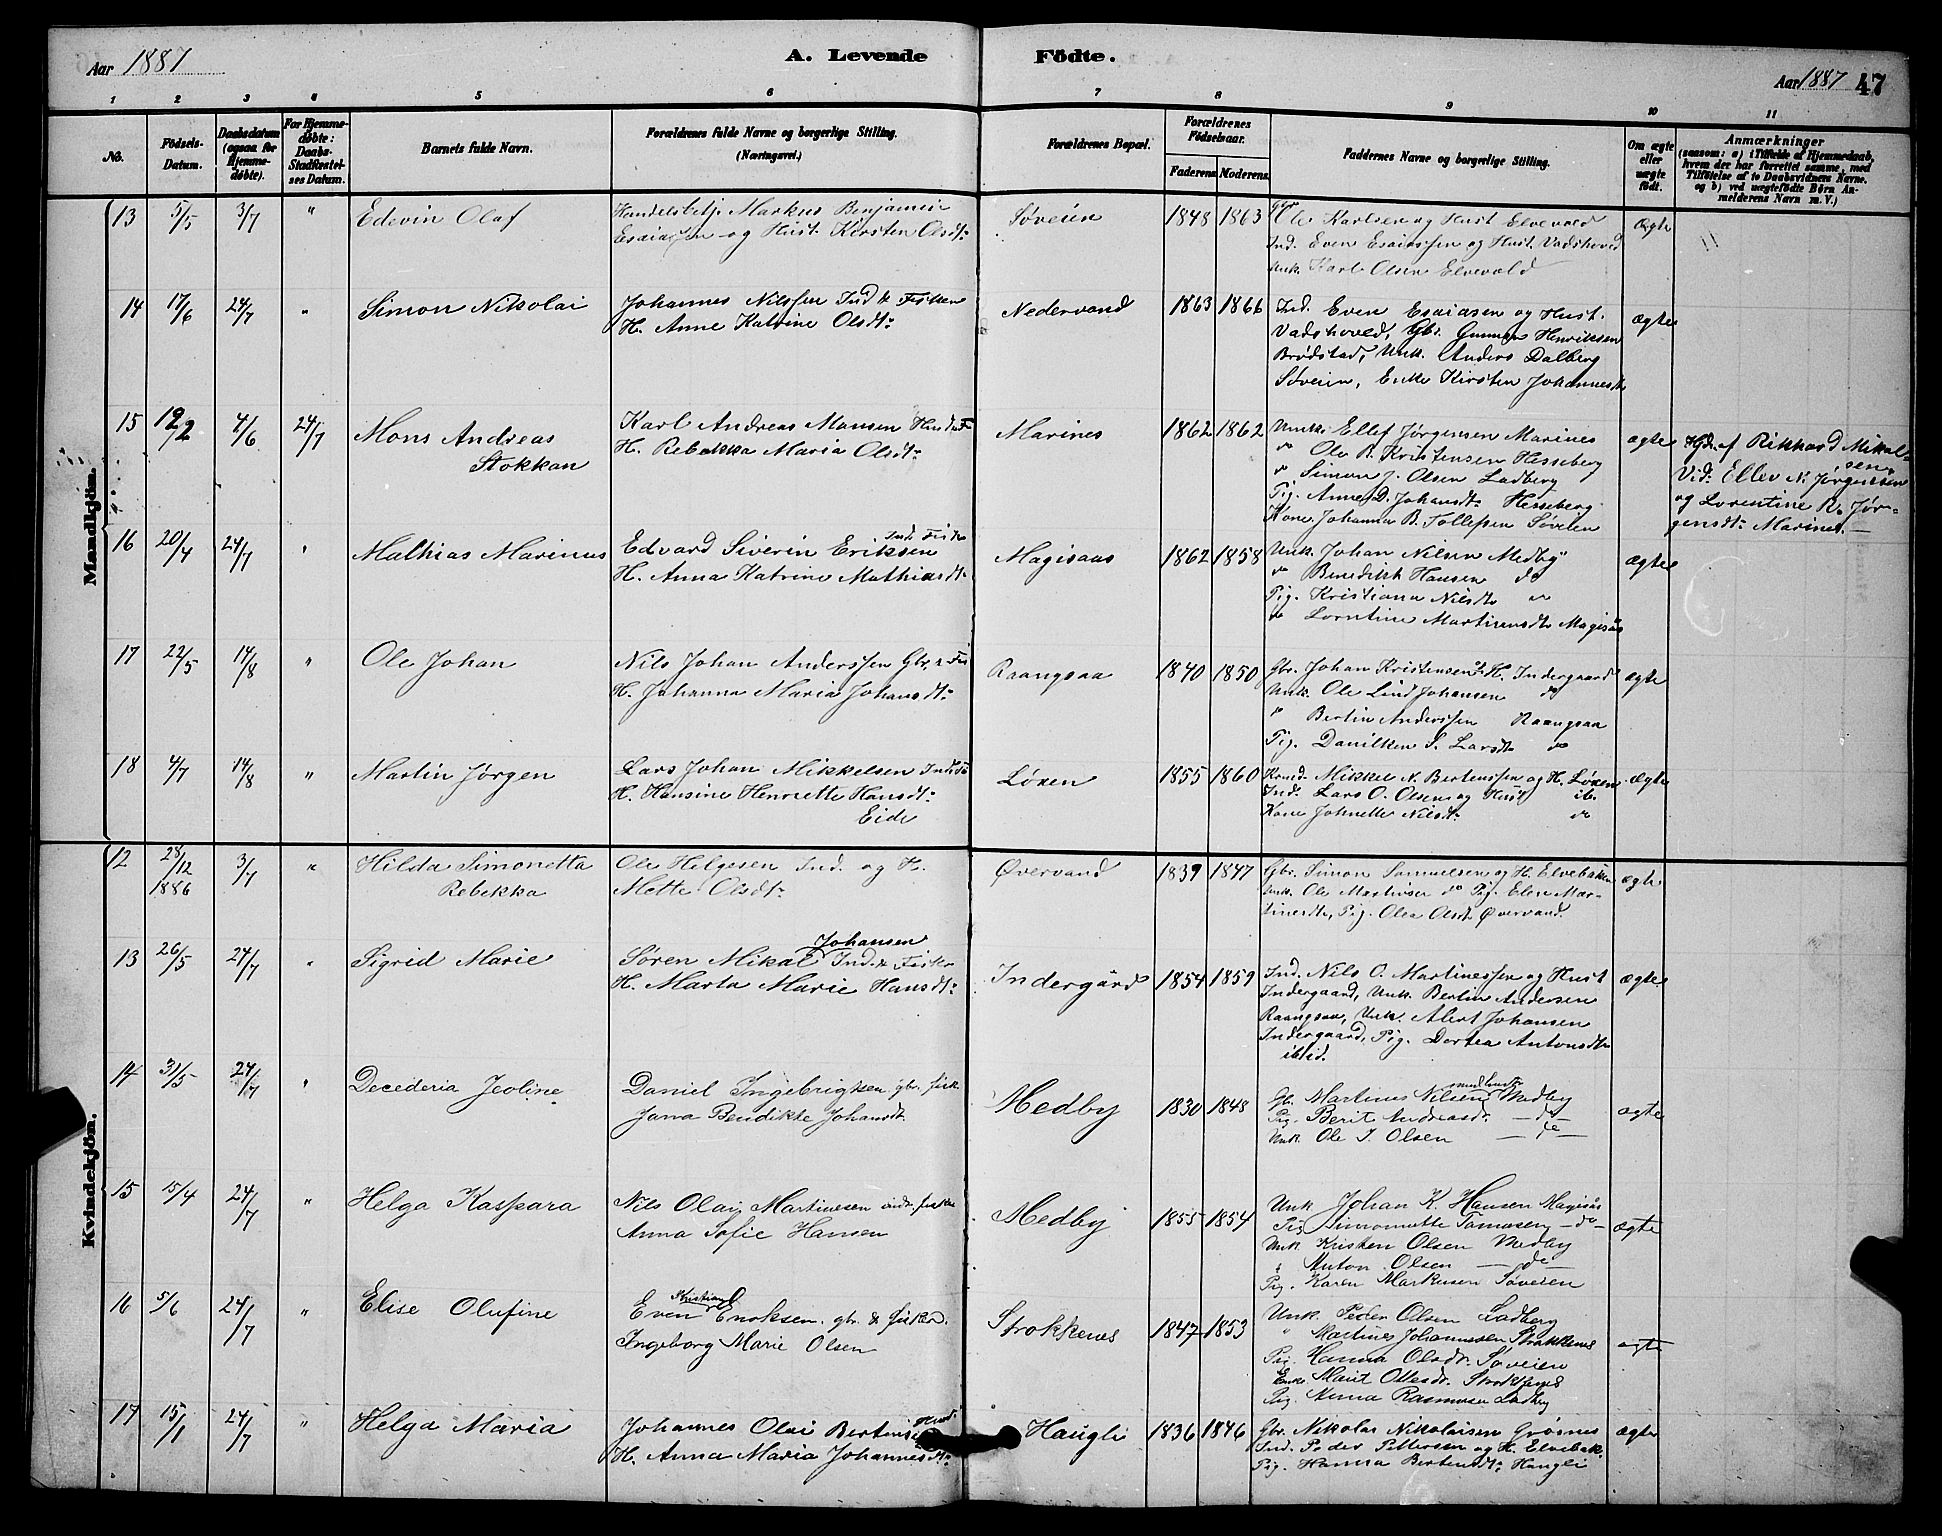 Aar 1887
A. Levende Födte.
Aar 1887 47
1 2 3 4 5 6 7 8 9 10 11
No.
Födsels-Datum.
Daabsdatum (ogsaa for Hjemme-døbte).
For Hjemme-døbte: Daabs-Stadfæstel-ses Datum.
Barnets fulde Navn.
Forældrenes fulde Navne og borgerlige Stilling. (Næringsvei.)
Forældrenes Bopæl.
Forældrenes Födselsaar.
Faderens Moderens
Faddernes Navne og borgerlige Stilling.
Om ægte eller uægte født.
Anmærkninger
(saasom: a) i Tilfælde af Hjemmedaab, hvem der har forrettet samme, med Tilføielse af to Daabsvidners Navne. og b) ved uægtefødte Börn An-melderens Navn m. V.)
Mandkjön.
13 5/5 3/7 " Edevin Olaf
Handelsbetj. Markus Benjamin
Esaiassen og Hust. Kirsten Olsdt:
Søveien 1848 1863
Gbr Ole Karlsen og Hust Elvevold
Ind. Even Esaiassen og Hust. Vadshoved
Unk. Karl Olsen Elvevold
Ægte
14 17/6 24/7 " Simon Nikolai
Johannes Nilssen Ind & Fisker
H. Anne Katrine Olsdt:
Nedervand 1863 1866
Ind. Even Esaiasen og Hust.
Vadshoved, Gbr. Gunnar Henriksen
Brødstad, Unk. Anders Dalberg
Søveien, Enke Kirsten Johannesdt
ægte
15 12/2 4/6 24/7 Mons Andreas
Stokkan
Karl Andreas Monsen
H. Rebekka Maria Olsdt:
Marines 1862 1862
Unk: Ellef Jørgensen Marines
do Ole R. Kristensen Hesseberg
do Simon J. Olsen Ladberg
Pig. Anne D. Johansdt: Hesseberg
Kone Johanna B. Tollefsen Søveien
ægte
Hjd. af Rikhard Mikal-
sen
Vid: Ellev N. Jørgenssen
og Lorentine R. Jør-
gensdt: Marines.
16 20/4 24/7 " Mathias Marinus
Edvard Siverin Eriksen Ind. Fisk
H. Anna Katrine Mathiasdt:
Magisaas 1862 1858
Unk. Johan Nilsen Medby
do Benedikt Hansen do
Pig. Kristiana Nilsdt do
do Lorntine Martinensdt: Magisås
ægte
17 22/5 14/8 " Ole Johan
Nils Johan Anderssen Gbr. & Fis
H. Johanna Maria Johansdt:
Raangsaa 1840 1850
Gbr. Johan Kristensen & H. Indergaard
Unk. Ole Lind Johansen do
" Bertin Anderssen Raangsaa
Pig. Danilken S. Larsdt do
ægte
18 4/7 14/8 " Martin Jørgen
Lars Johan Mikkelsen Ind: Fi
H. Hansine Henriette Hansdt:
Eide
Løxen 1855 1860
Kaard. Mikkel N. Bertenssen og H. Løxen
Ind. Lars O. Olsen og Hust ib.
Kone Johnette Nilsdt: do
ægte
Kvindekjön.
12 28/12 1886 3/7 " Hilda Simonetta
Rebekka
Ole Helgesen Ind. og H.
Mette Olsdt:
Øvervand 1839 1847
Gbr. Simon Samuelsen og H. Elvebakken
Unk. Ole Martinsen do Pig. Elen Mar-
tinesdt, Pig. Olea Olsdt Øvervand.
ægte
13 26/5 24/7 " Sigrid Marie
Johansen
Søren Mikal Ind. & Fisker
H. Marta Marie Hansdt:
Indergård 1854 1859
Ind. Nils O. Martinessen og Hust
Indergaard, Unk. Bertin Andersen
Raangsaa, Unk. Alert Johansen
Indergaard, Pig. Dortea Antonsdt:
ibid.
ægte
14 31/5 24/7 " Decederia Jeoline
Daniel Ingebrigtsen gbr. fisk
Jana Bendikte Johansdt.
Medby 1830 1848
Gb. Martines Nilsen med hustr Medby
Pig. Berit Andreasdr. — do —
Unk Ole J. Olsen — do —
ægte
15 15/4 24/7 " Helga Kaspara
Nils Olai Martinesen indr. fisker
Anna Sofie Hansen
Medby 1855 1854
Unk Johan K. Hansen Magisås
Pig Simonette Tomasen — do —
Unk Kristen Olsen Medby
" Anton Olsen — do —
Pig. Karen Markusen Søveien
ægte
16 5/6 24/7 " Elise Olufine
Kristian
Even Enoksen. gbr. & fisker.
Ingeborg Marie Olsen
Strokkenes 1847 1853
Unk. Peder Olsen Ladberg
" Martines Johannessen Strokkenes
Pig. Hanna Olsdr. Søveien
Enke Marit Ottesdr. Strokkenes
Pig. Anna Rasmusen Ladberg
ægte
17 15/1 24/7 " Helga Maria
Johannes Olai Bertensen
H. Anna Maria Johannesdt:
Haugli 1836 1846
Gbr. Nikolai Nikolaisen Grøsnes
Ind. Peder Pettersen og H. Elvebak.
Pig. Hanna Bertensdt: Haugli
ægte